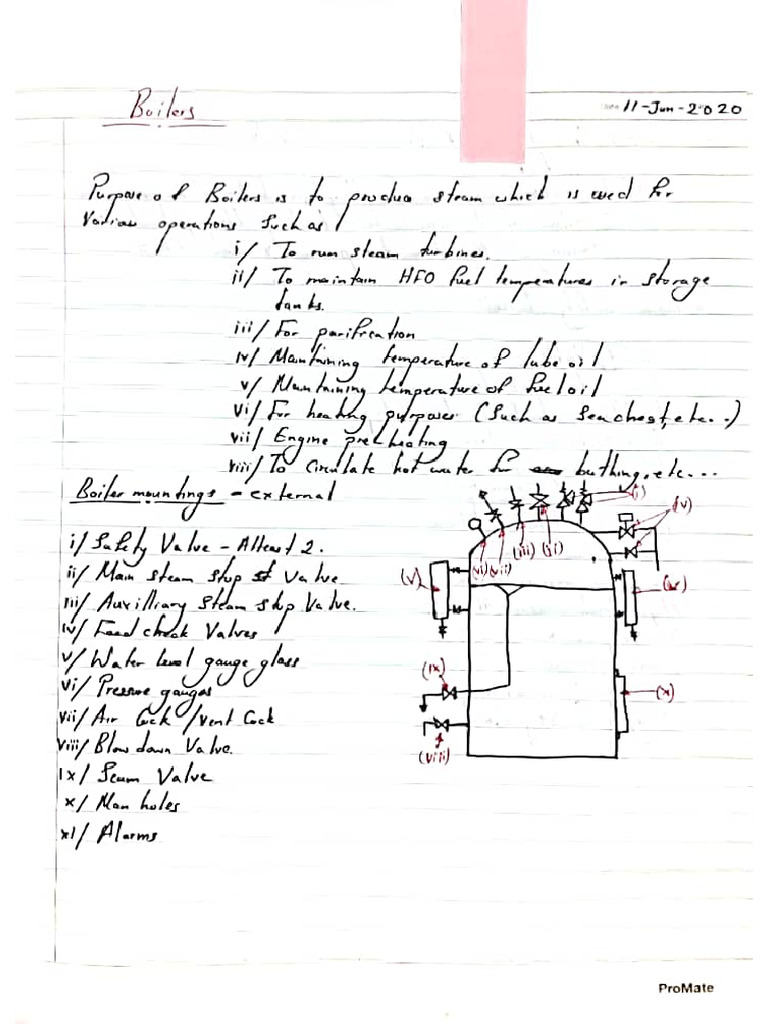 Boilers
11-Jun-2020
Purpose of Boilers is to produce steam which is used for
Various operations Such as
i/ To run steam turbines.
ii/ To maintain HFO fuel temperatures in storage
tanks.
iii/ For purification
iv/ Maintaining temperature of lube oil
v/ Maintaining temperature of fuel oil
vi/ For heating purposes (Such as Seachest, etc...)
vii/ Engine pre-heating
viii/ To Circulate hot water for bathing, etc...
Boiler mountings - external
i/ Safety Valve - Atleast 2.
ii/ Main steam stop Valve
iii/ Auxilliary Steam stop Valve.
iv/ Feed check Valves
v/ Water level gauge glass
vi/ Pressure gauges
vii/ Air Cock / Vent Cock
viii/ Blow down Valve.
ix/ Scum Valve
x/ Man holes
xi/ Alarms
(i)
(iv)
(vi) (vii) (iii) (ii)
(v)
(ix)
(x)
(viii)
ProMate